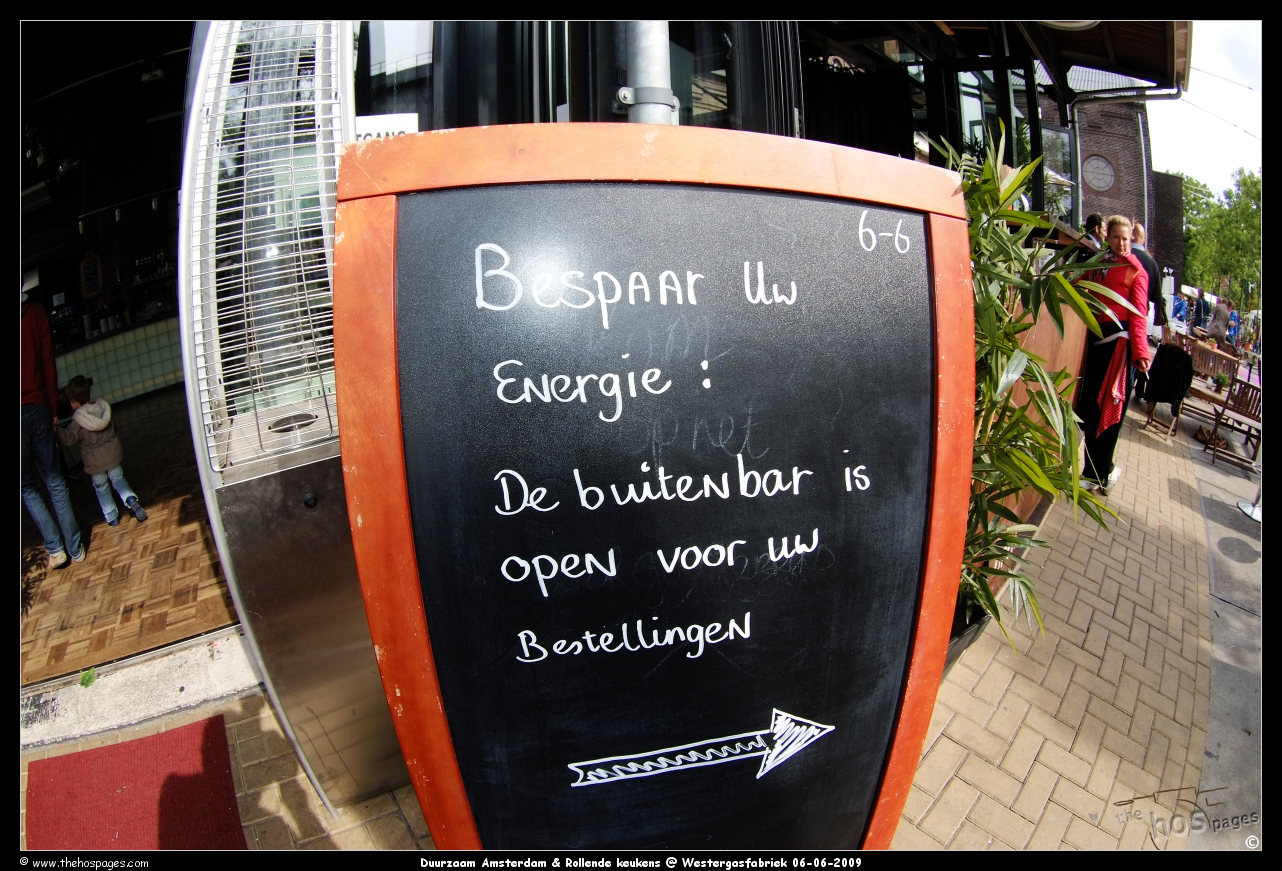 6-6
Bespaar Uw
Energie :
De buitenbar is
open voor uw
Bestellingen
the hospages
©
© www.thehospages.com
Duurzaam Amsterdam & Rollende keukens @ Westergasfabriek 06-06-2009